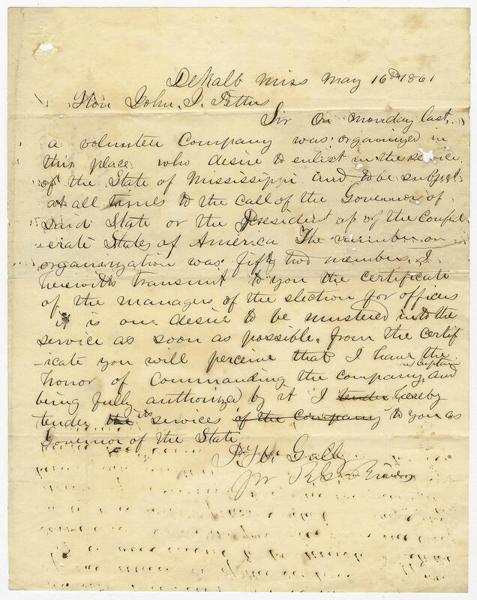 DeKalb Miss May 16th 1861
Hon John. J. Pettus
Sir On Monday last
a volunteer Company was organized in
this place who desire to enlist in the service
of the State of Mississippi and to be subject
at all times to the call of the Governor of
said State or the President of of the Confed-
erate States of America The number on
organization was fifty two members, I
herewith transmit to you the certificate
of the managers of the election for officers
it is our desire to be mustered into the
service as soon as possible. from the certif
icate you will perceive that I have the
honor of Commanding the company as captain and
being fully authorized by it I tender hereby
tender the its services of the company to you as
Governor of the State